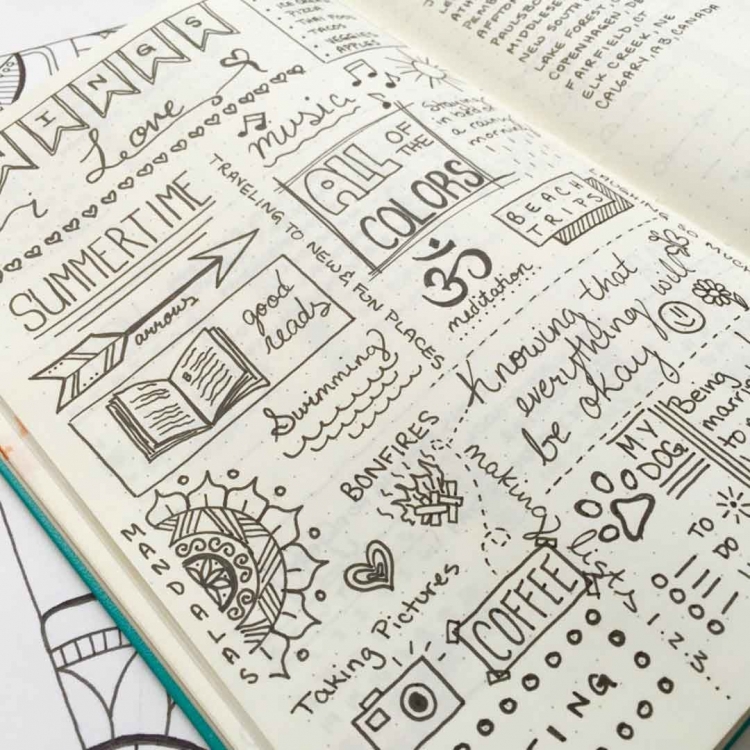 INGS
i Love
PIZZA
THAI FOOD
TACOS
VEGGIES
APPLES
NEW SOUTH
LAKE FOREST,
COPENHAGEN,
FAIRFIELD, CT
ELK CREEK, NE
CALGARY, AB, CANADA
music
Staying
in bed
a rainy
morning
ALL OF
THE
COLORS
SUMMERTIME
TRAVELING TO NEW & FUN PLACES
BEACH
TRIPS
LAUGHING SO MUCH
arrows
good
reads
meditation
Swimming
Knowing that
everything will
be okay
BONFIRES
MY
DOG
Being
making lists
TO
DO
1. 2. 3...
MANDALAS
Taking Pictures
COFFEE
ING